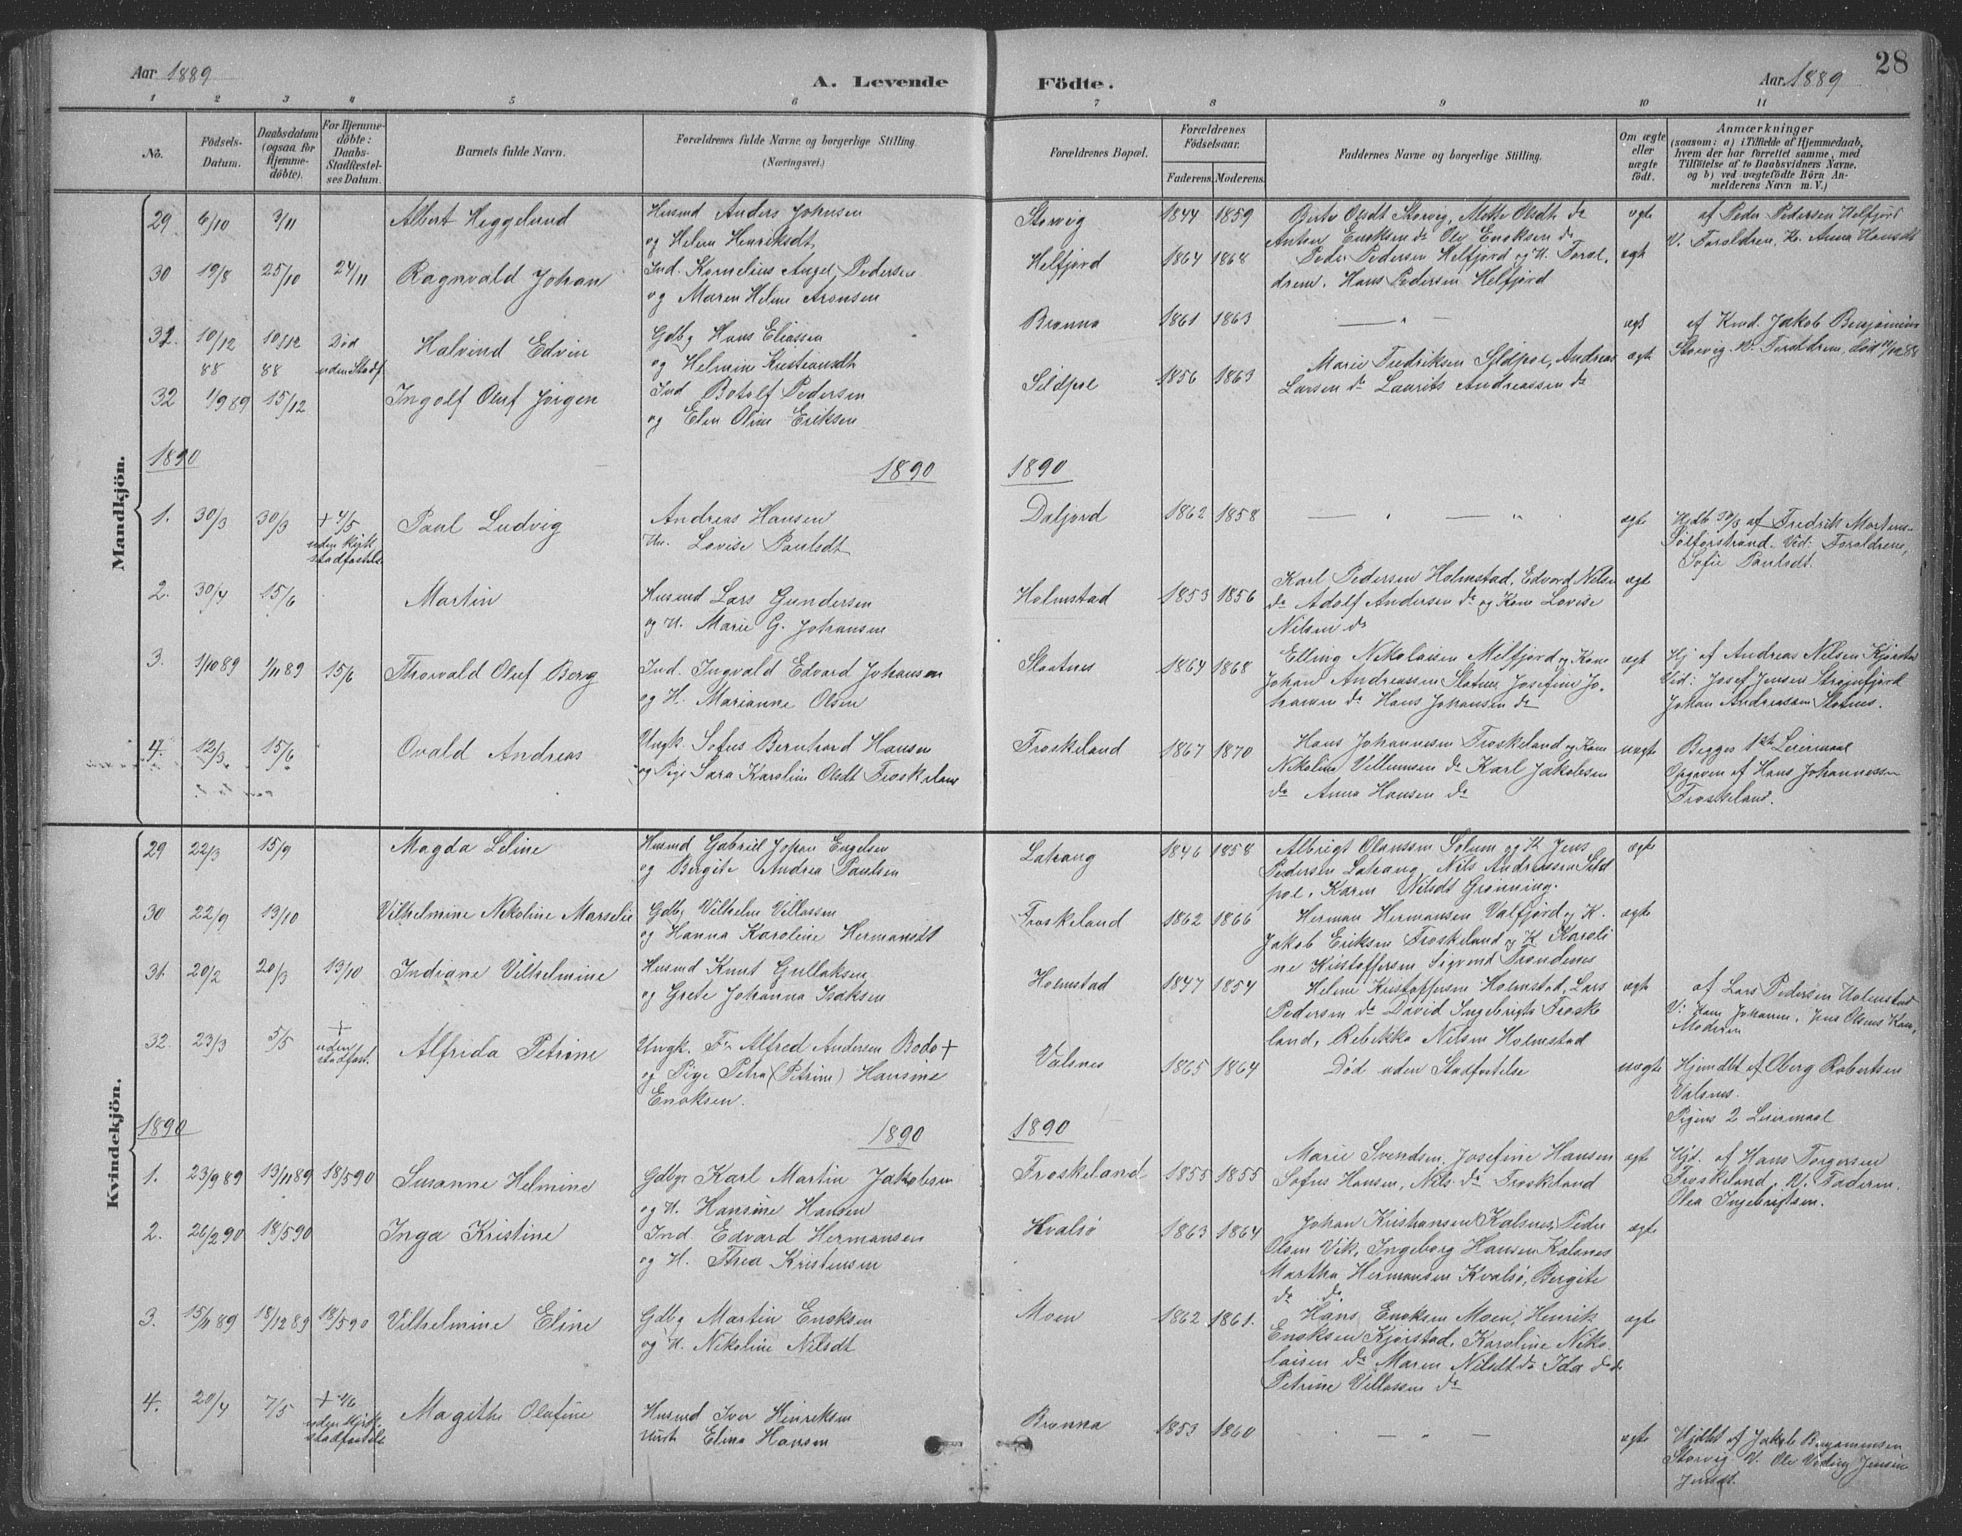 Aar 1889
A. Levende
Födte.
Aar 1889
28
1 2 3 4 5 6 7 8 9 10 11
No.
Födsels-Datum.
Daabsdatum (ogsaa for Hjemme-döbte).
For Hjemme-döbte: Daabs-Stadfæstel-ses Datum.
Barnets fulde Navn.
Forældrenes fulde Navne og borgerlige Stilling. (Næringsvei.)
Forældrenes Bopæl.
Forældrenes Födselsaar.
Faderens. Moderens.
Faddernes Navne og borgerlige Stilling.
Om ægte eller uægte födt.
Anmærkninger
(saasom: a) i Tilfælde af Hjemmedaab, hvem der har forrettet samme, med Tilföielse af to Daabsvidners Navne. og b) ved uægtefödte Börn An-melderens Navn m. V.)
Mandkjön.
29 6/10 3/11 Albert Heggelund
Husmd Anders Johnsen
og Helene Henriksdt
Storvig 1844 1859
Berto Olsdt Storvig, Mette Olsdt do
Anton Enoksen do Ole Enoksen do
ægte
30 19/8 25/10 24/11 Ragnvald Johan
Ind. Kornelius Angel Pedersen
og Maren Helene Aronsen
Helfjord 1864 1868
Peder Pedersen Helfjord og H. Foræl,
drene. Hans Pedersen Helfjord
ægte
af Peder Pedersen Helfjord
V. Forældrene, K. Anna Hansdt
31. 10/12 88 10/12 88 Död uden Stadf. Halvind Edvin
Gdbg Hans Eliassen
og Helmine Kristiansdt
Brenna 1861 1863
— " —
ægt
af Kmd. Jakob Benjaminsen
Storvig V. Forældrene, död 11/12 88
32 1/9 89 15/12 Ingolf Oluf Jörgen
Ind Botolf Pedersen
og Elen Oline Eriksen
Sildpol 1856 1863
Marie Fredriksen Sildpol, Andreas
Larsen do Laurits Andreassen do
ægte
1890 1890 1890
1. 30/3 30/3 + 4/5 uden kirk. stadfæstels. Paul Ludvig
Andreas Hansen
Hu. Lovise Paulsdt
Daljord 1862 1858
ægte
Hjdb 30/3 af Fredrik Mortens-
Sölforstrand. Vid: Forældrene,
Sofie Paulsdt.
2. 30/4 15/6 Martin
Husmd Lars Gundersen
og H. Marie G. Johansen
Holmstad 1853 1856
Karl Pedersen Holmstad, Edvard Nilsen
do Adolf Andersen do og Kone Lovise
Nilsen do
ægte
3. 1/10 89 1/11 89 15/6 Thorvald Oluf Berg
Ind. Ingvald Edvard Johansen
og H. Marianne Olsen
Slaatnes 1864 1868
Elling Nikolaisen Melfjord og Kone
Johan Andreassen Slotnes, Josefine Jo-
hansen do Hans Johansen do
ægt
Hj af Andreas Nilsen Kjörstad
Vid: Josef Jensen Straumfjord
Johan Andreassen Slotnes.
4. 12/3 15/6 Ovald Andreas
Ungk. Sofus Bernhard Hansen
og Pige Sara Karoline Olsdt Froskeland
Froskeland 1867 1870
Hans Johannesen Froskeland og Kone
Nikoline Villumsen do Karl Jakobsen
do Anna Hansen do
uægte
Begges 1ste Leiermaal
Opgaven af Hans Johannessen
Froskeland.
Kvindekjön.
29 22/3 15/9 Magda Seline
Husmd Gabriel Johan Engelsen
og Bergite Andrea Paulsen
Lahaug 1846 1858
Albrigt Olaussen Solum og K. Jens
Pedersen Lahaug, Nils Andreassen Sild
pol, Karen Nilsdt Grönning.
ægte
30 22/9 13/10 Vilhelmine Nikoline Marselie
Gdbg Vilhelm Villassen
og Hanna Karoline Hermansdt
Froskeland 1862 1866
Herman Hermansen Valfjord og K.
Jakob Eriksen Froskeland og K Karoli
ne Kristoffersen Sigvard Trondenes
ægte
31. 20/2 20/3 13/10 Indiane Vilhelmine
Husmd Knut Gullaksen
og Grete Johanna Isaksen
Holmstad 1847 1854
Helene Kristoffersen Holmstad, Lars
Pedersen do David Ingebrigts Froske
land, Rebekka Nilsen Holmstad
ægte
af Lars Pedersen Holmstad
V: Johanne, Jens Olsens Kone,
Moderen
32. 23/3 5/5 + uden stadfæst. Alfrida Petrine
Ungk. Fr Alfred Andersen Bodo +
og Pige Petra (Petrine) Hansine
Enoksen.
Valsnes 1865 1864
Död uden Stadfæstelse
uægte
Hjemdbt af Oberg Robertsen
Valsnes.
Pigens 2 Leiermaal
1890 1890 1890
1. 23/9 89 13/11 89 18/5 90 Susanne Helmine
Gdbgr Karl Martin Jakobsen
og H. Hansine Hansen
Froskeland 1855 1855
Marie Svendsen, Josefine Hansen
Sofus Hansen, Nils do Froskeland
ægte
Hjd. af Hans Torgersen
Froskeland. V. Faderen
Olea Ingebrigtsen.
2. 26/2 90 18/5 90 Inga Kristine
Ind. Edvard Hermansen
og H. Thea Kristensen
Kvalsö 1863 1864
Johan Kristiansen Kalsnes, Peder
Olsen Vik, Ingeborg Hansen Kalsnes
Martha Hermansen Kvalsö, Bergite
do do
ægte
3. 15/11 89 18/12 89 18/5 90 Vilhelmine Eline
Gdbg Martin Enoksen
og H. Nikoline Nilsdt
Moen 1862 1861.
Hans Enoksen Moen, Henrik
Enoksen Kjörstad, Karoline Niko
laisen do Maren Nilsdt do Ida do do
Petrine Villassen do
ægte
4. 20/4 7/5 + 4/6 uden kirk. stadfæstels Magithe Olufine
Husmd Iver Henriksen
Hust. Elina Hansen
Brenna 1853 1860
ægte
Hjdbt af Jakob Benjaminsen
Storvig V. Ole Jensen
Jensdt.